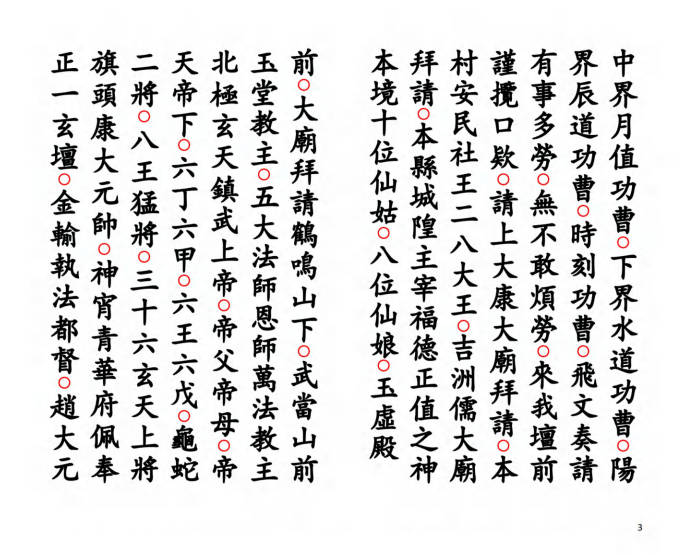 中界月值功曹○下界水道功曹○陽
界辰道功曹○時刻功曹○飛文奏請
有事多勞○無不敢煩勞○來我壇前
謹攬口欵○請上大康大廟拜請○本
村安民社王二八大王○吉洲儒大廟
拜請○本縣城隍主宰福德正值之神
本境十位仙姑○八位仙娘○玉虛殿
前○大廟拜請鶴鳴山下○武當山前
玉堂教主○五大法師恩師萬法教主
北極玄天鎮武上帝○帝父帝母○帝
天帝下○六丁六甲○六王六戊○龜蛇
二將○八王猛將○三十六玄天上將
旗頭康大元帥○神宵青華府佩奉
正一玄壇○金輪執法都督○趙大元
3